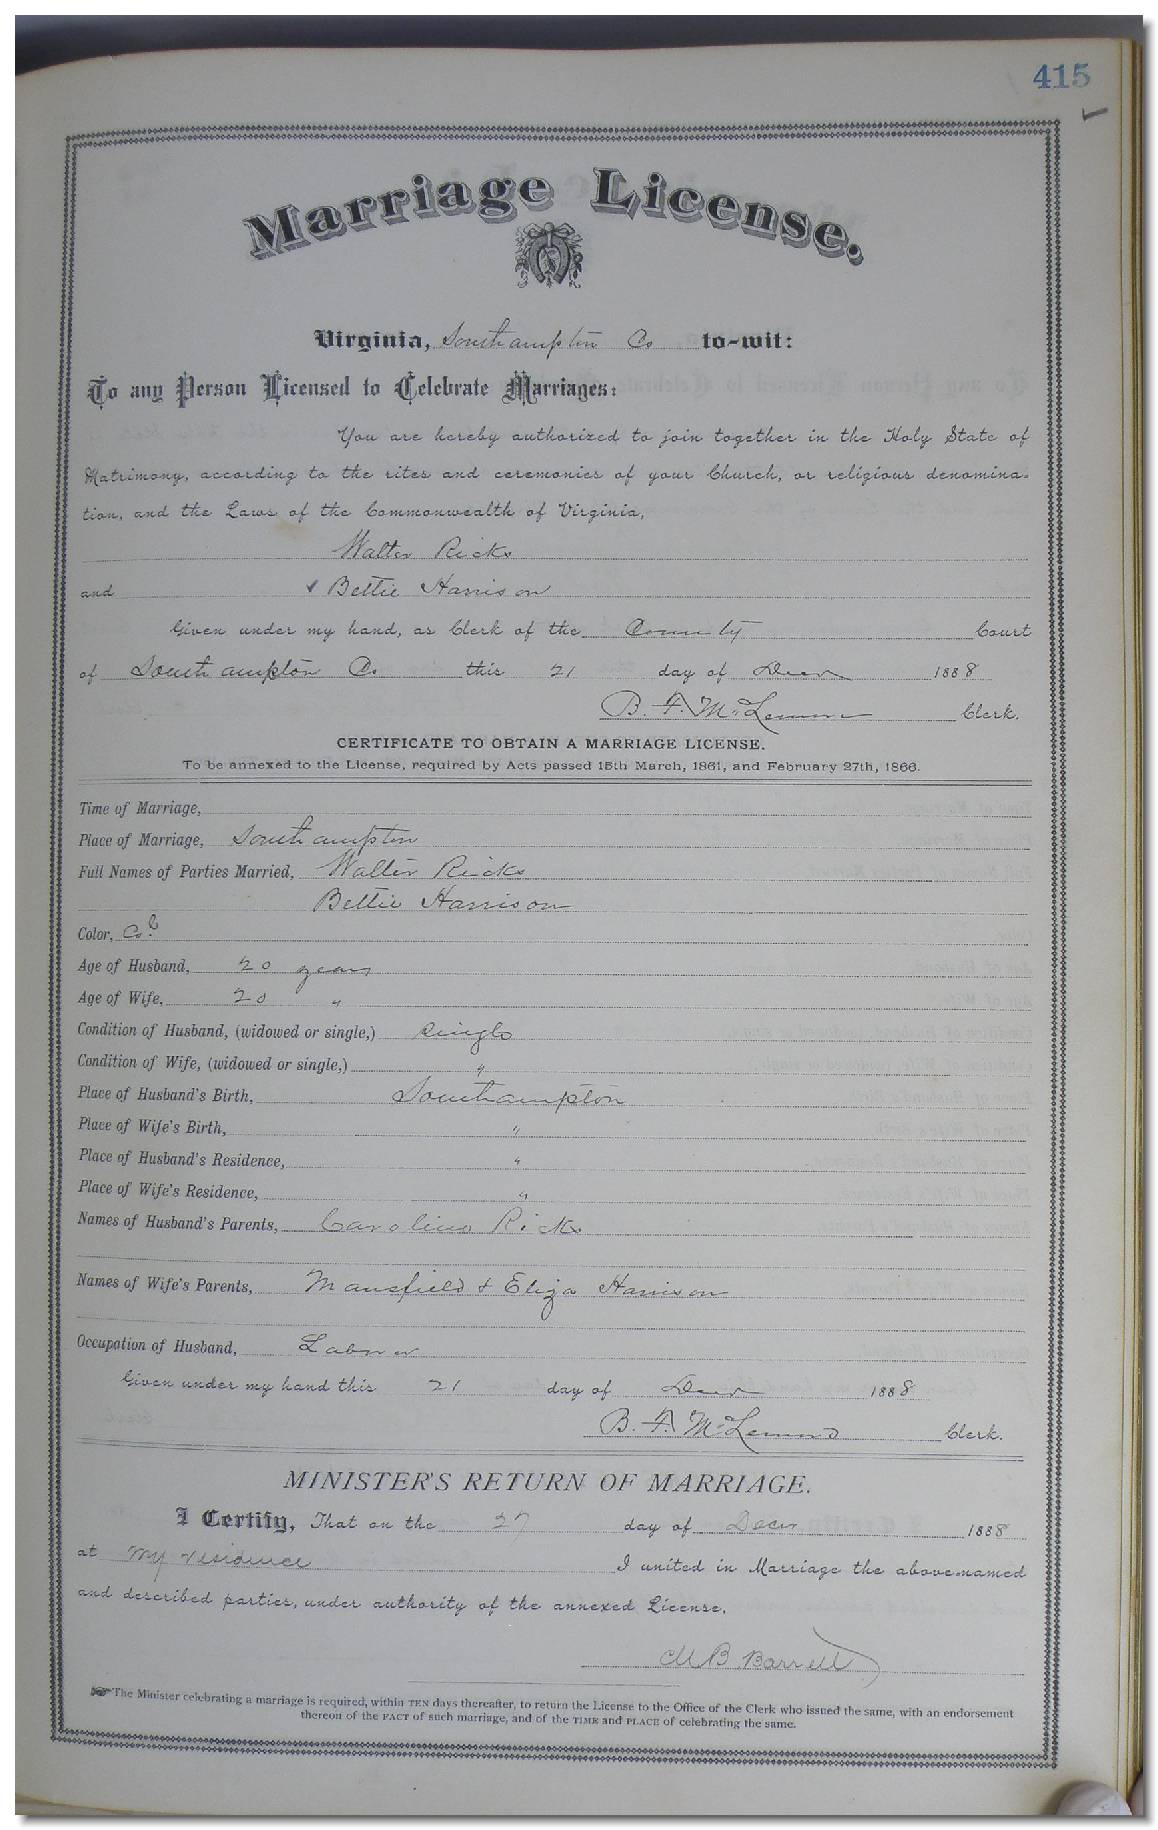 415
Marriage License.
Virginia, Southampton Co to-wit:
To any Person Licensed to Celebrate Marriages:
You are hereby authorized to join together in the Holy State of
Matrimony, according to the rites and ceremonies of your Church, or religious denomina-
tion, and the Laws of the Commonwealth of Virginia,
Walter Ricks
and ✓ Bettie Harrison
Given under my hand, as Clerk of the County Court
of Southampton Co this 21 day of Decr 1888
B. F. McLemore Clerk.
CERTIFICATE TO OBTAIN A MARRIAGE LICENSE.
To be annexed to the License, required by Acts passed 15th March, 1861, and February 27th, 1866.
Time of Marriage,
Place of Marriage, Southampton
Full Names of Parties Married, Walter Ricks
Bettie Harrison
Color, Cold
Age of Husband, 20 years
Age of Wife, 20 "
Condition of Husband, (widowed or single,) Single
Condition of Wife, (widowed or single,) "
Place of Husband's Birth, Southampton
Place of Wife's Birth, "
Place of Husband's Residence, "
Place of Wife's Residence, "
Names of Husband's Parents, Caroline Ricks
Names of Wife's Parents, Mansfield & Eliza Harrison
Occupation of Husband, Laborer
Given under my hand this 21 day of Decr 1888
B. F. McLemore Clerk.
MINISTER'S RETURN OF MARRIAGE.
I Certify, That on the 27 day of Decr 1888
at My residence I united in Marriage the above-named
and described parties, under authority of the annexed License.
M B Barrett
☞ The Minister celebrating a marriage is required, within TEN days thereafter, to return the License to the Office of the Clerk who issued the same, with an endorsement
thereon of the FACT of such marriage, and of the TIME and PLACE of celebrating the same.